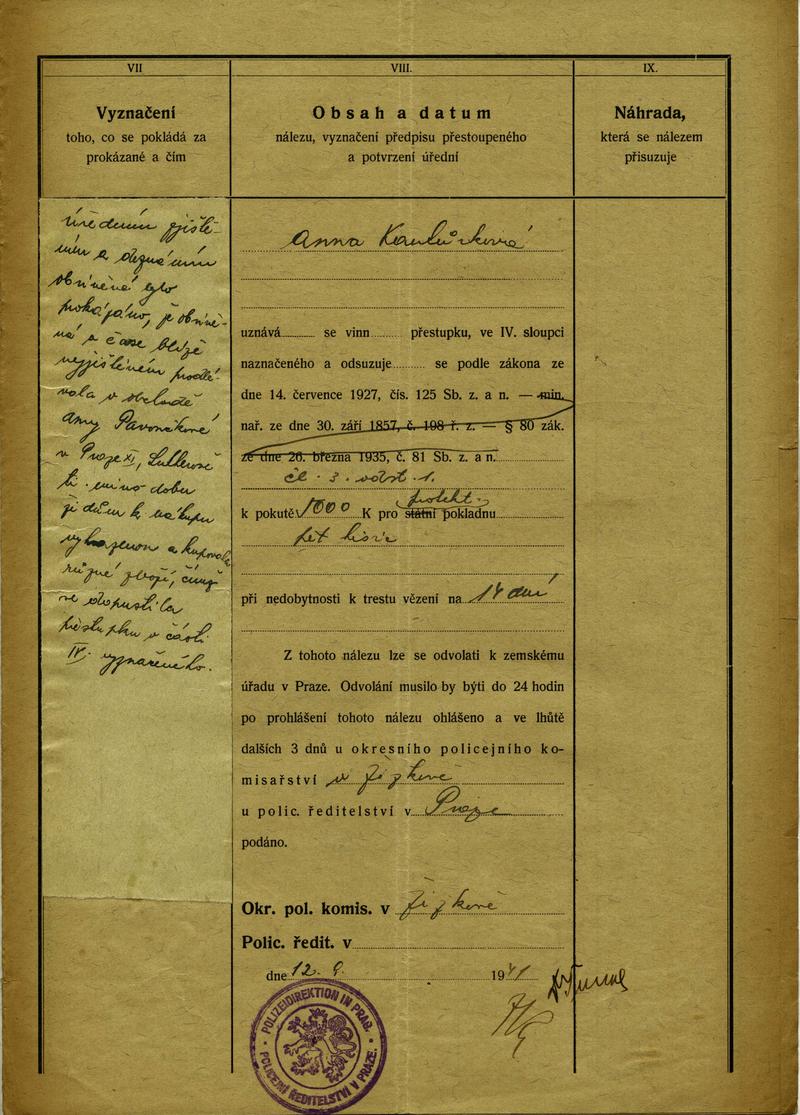 VII
VIII.
IX.
Vyznačení
toho, co se pokládá za
prokázané a čím
Obsah a datum
nálezu, vyznačení předpisu přestoupeného
a potvrzení úřední
Náhrada,
která se nálezem
přisuzuje
Úředním zjiště-
ním a doznáním
obviněné bylo
prokázáno, že obvině-
ná v čase blíže
nezjištěném prodlé-
vala v obchodě
Anny
v Praze XI,
ti mimo dobu
židům k nákupu
a kupovala
různé zboží, čímž
se dopustila
přestupku v části
IV. vyznačeného.
Anna
uznává se vinn přestupku, ve IV. sloupci
naznačeného a odsuzuje se podle zákona ze
dne 14. července 1927, čís. 125 Sb. z. a n. — min.
nař. ze dne 30. září 1857, č. 198 ř. z. — § 80 zák.
ze dne 26. března 1935, č. 81 Sb. z. a n.
čl. 3. odst. 1.
protekt.
k pokutě 1000 K pro státní pokladnu
při nedobytnosti k trestu vězení na 14 dní
Z tohoto nálezu lze se odvolati k zemskému
úřadu v Praze. Odvolání musilo by býti do 24 hodin
po prohlášení tohoto nálezu ohlášeno a ve lhůtě
dalších 3 dnů u okresního policejního ko-
misařství v Žižkově
u polic. ředitelství v Praze
podáno.
Okr. pol. komis. v Žižkově
Polic. ředit. v
dne 12. 9. 1941
POLIZEIDIREKTION IN PRAG.
POLICEJNÍ ŘEDITELSTVÍ V PRAZE.